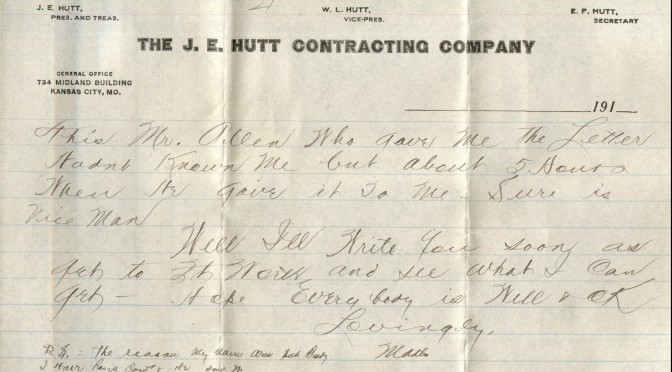 4
J. E. HUTT,
PRES. AND TREAS.
W. L. HUTT,
VICE-PRES.
E. F. HUTT,
SECRETARY
THE J. E. HUTT CONTRACTING COMPANY
GENERAL OFFICE
734 MIDLAND BUILDING
KANSAS CITY, MO.
191
This Mr. Allen Who gave Me the Letter
Hadnt Known Me but about 5 Hours
When He gave it To Me - Sure is
Nice Man
Well Ill Write You soon as
get to Ft Worth and see what I Can
get - Hope Everybody is Well & OK
Lovingly,
P.S. - The reason My name
I Have